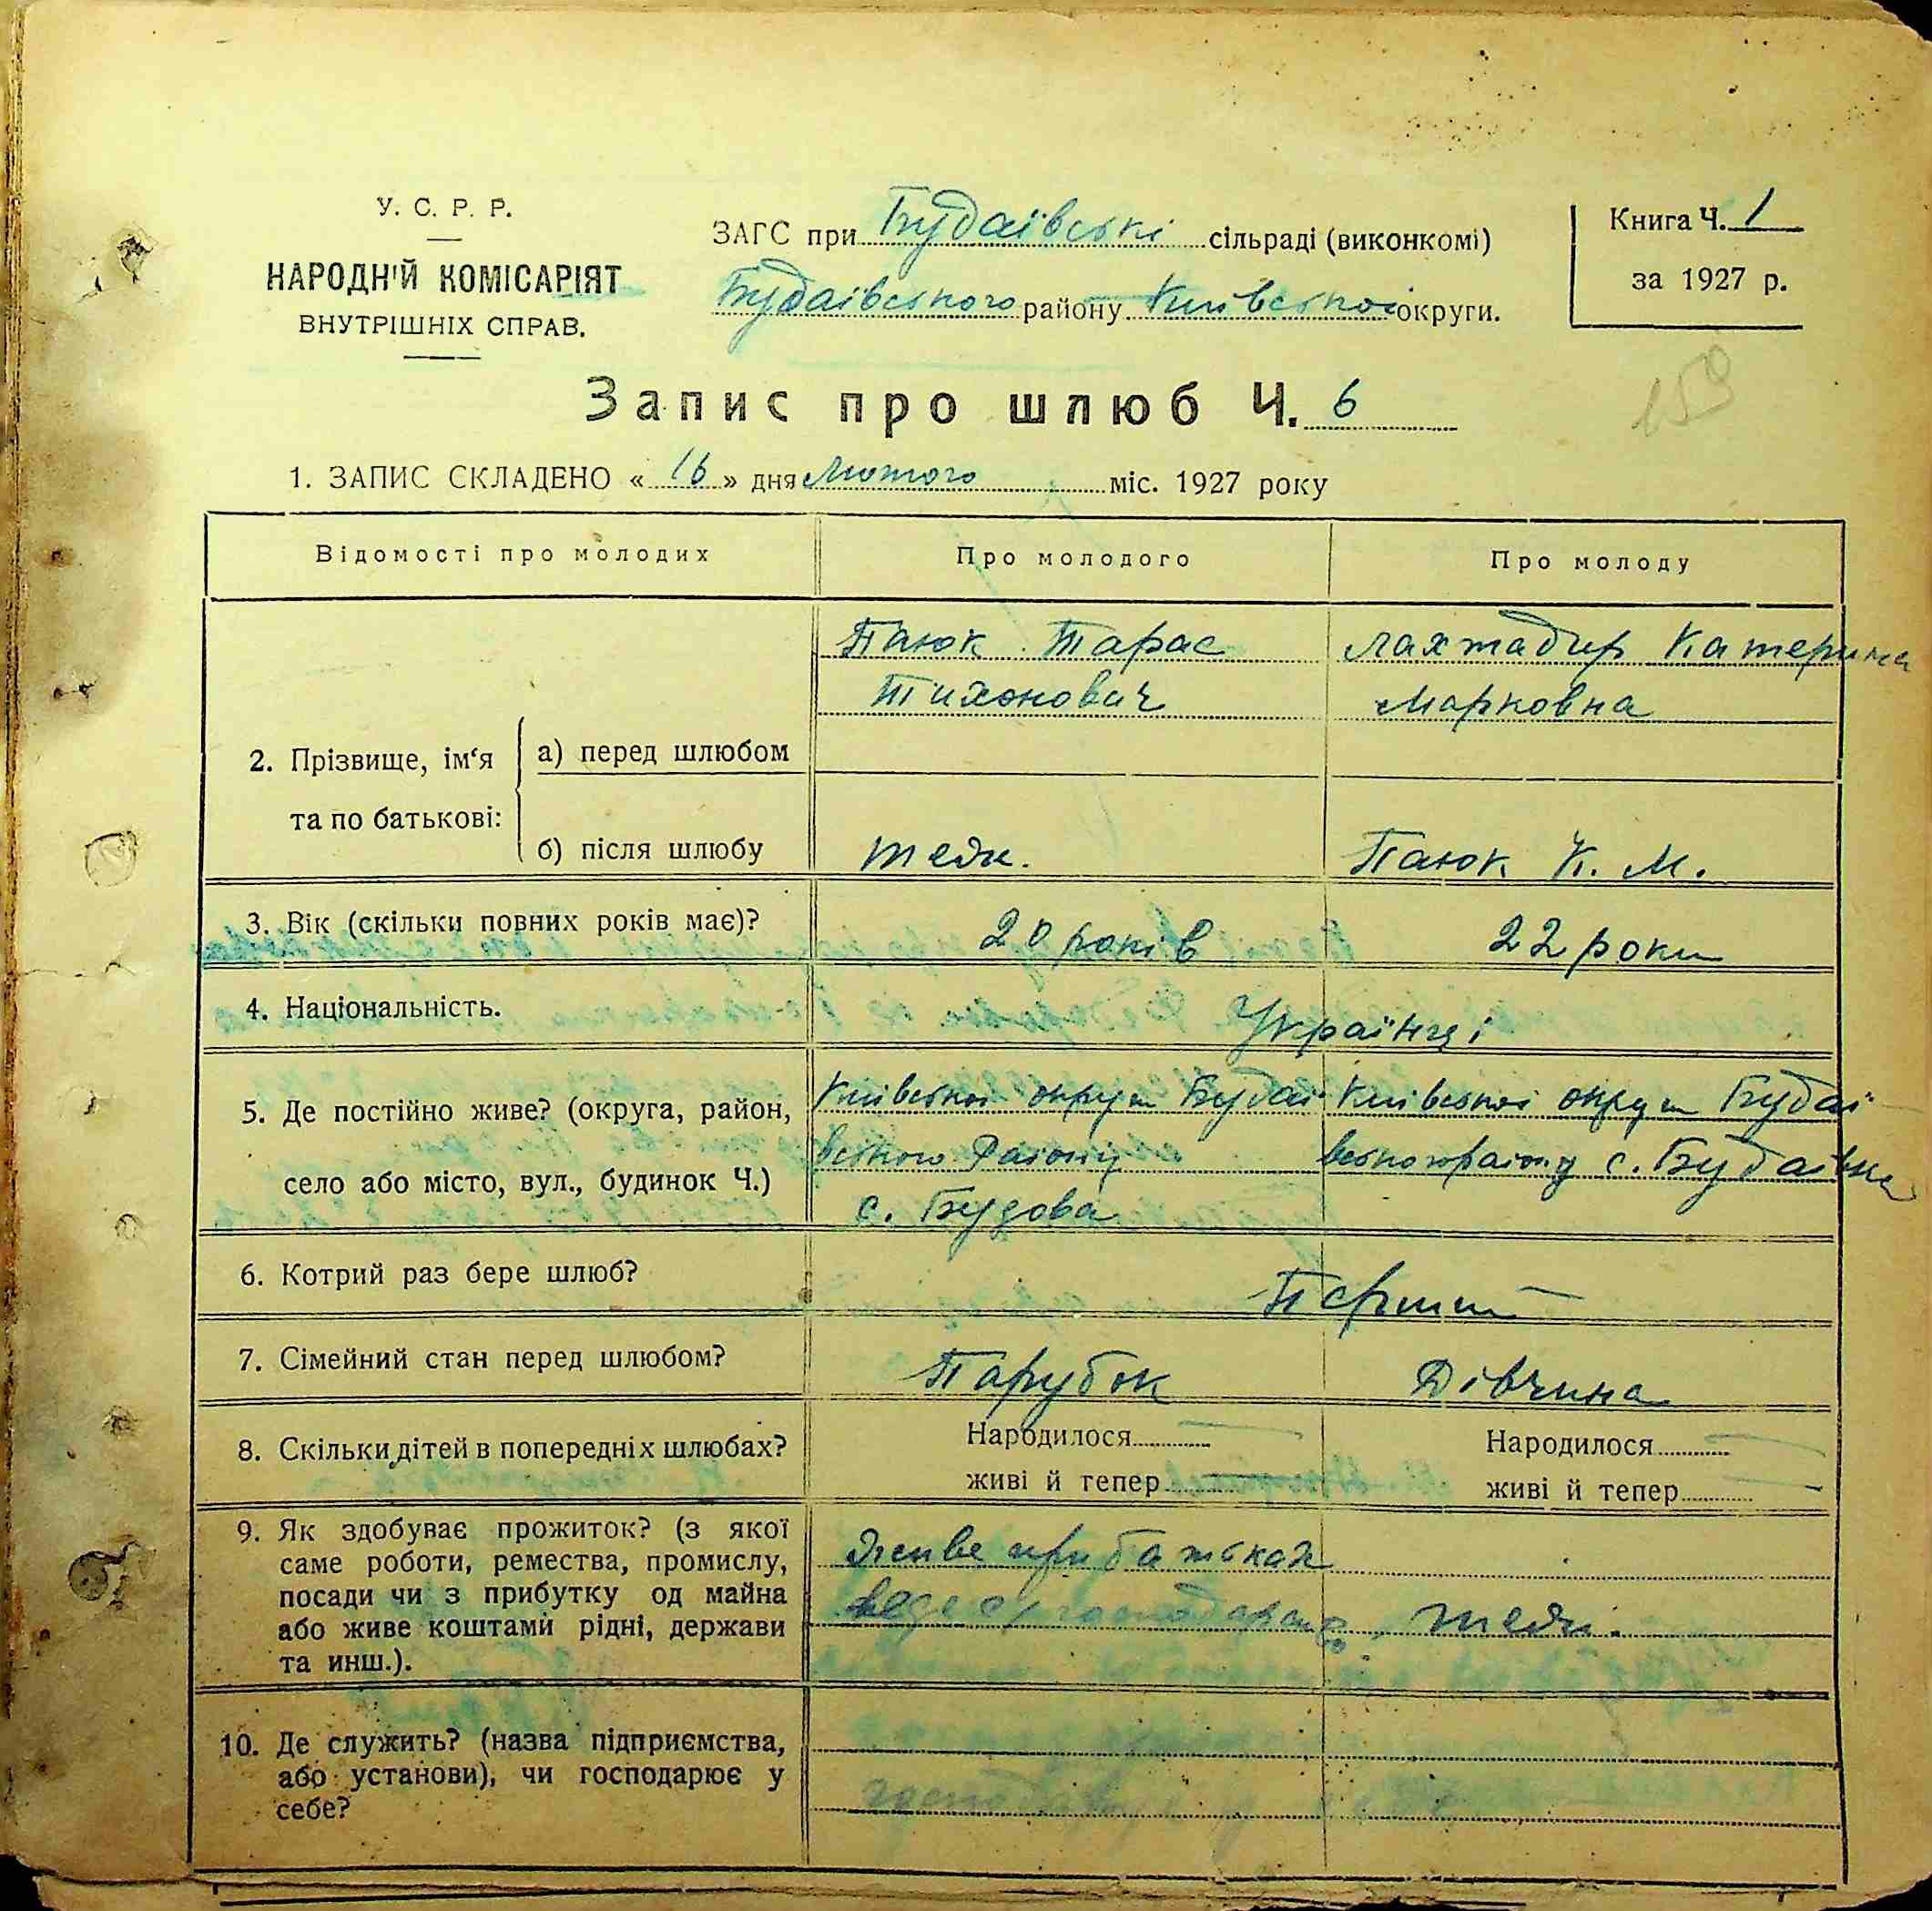 У. С. Р. Р.
НАРОДНІЙ КОМІСАРІЯТ
ВНУТРІШНІХ СПРАВ.
ЗАГС при Будаївські сільраді (виконкомі)
Будаівського району Київськоі округи.
Книга Ч. 1
за 1927 р.
Запис про шлюб Ч. 6
159
1. ЗАПИС СКЛАДЕНО « 16 » дня Лютого міс. 1927 року
Відомості про молодих
Про молодого
Про молоду
2. Прізвище, ім‘я та по батькові:
а) перед шлюбом
Паюк Тарас
Тихонович
Лахтадир Катерина
Марковна
б) після шлюбу
теж.
Паюк К. М.
3. Вік (скільки повних років має)?
20 років
22 роки
4. Національність.
Українці
5. Де постійно живе? (округа, район,
село або місто, вул., будинок Ч.)
Київськоі округи Будаї
вського Району
с. Будова
Київськоі округи Будаі
вського району с. Будаівка
6. Котрий раз бере шлюб?
Перший
7. Сімейний стан перед шлюбом?
Парубок
Дівчина
8. Скільки дітей в попередніх шлюбах?
Народилося —
живі й тепер —
Народилося —
живі й тепер —
9. Як здобуває прожиток? (з якої
саме роботи, ремества, промислу,
посади чи з прибутку од майна
або живе коштами рідні, держави
та инш.).
Живе при батьках
теж.
10. Де служить? (назва підприємства,
або установи), чи господарює у
себе?